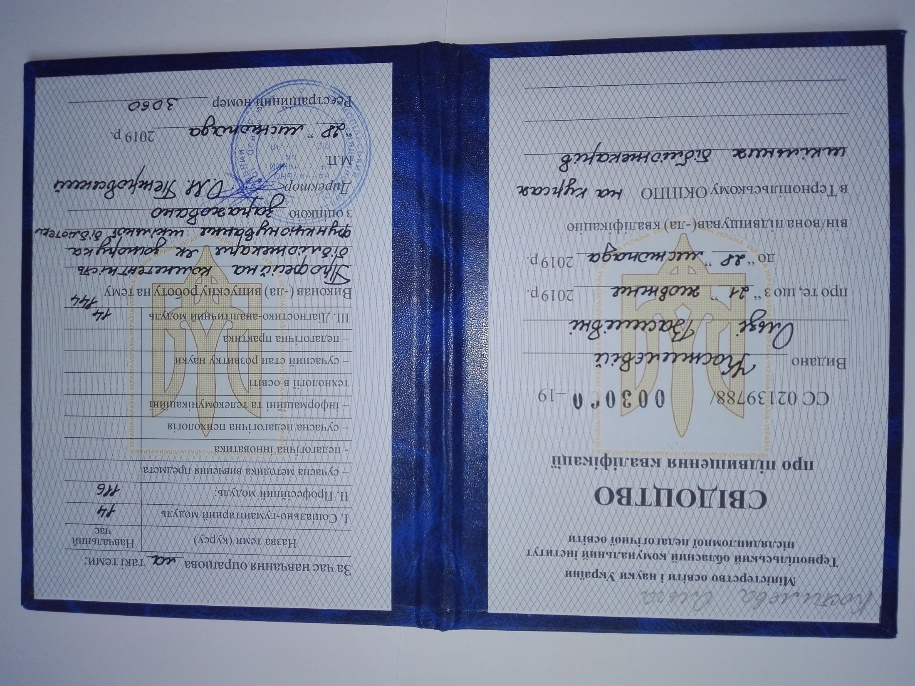 Костилєва Ольга
Міністерство освіти і науки України
Тернопільський обласний комунальний інститут
післядипломної педагогічної освіти
СВІДОЦТВО
про підвищення кваліфікації
СС 02139788/ 003060 –19
Видано Костилєвій
Ользі Василівні
про те, що з "21" жовтня 2019 р.
до "28" листопада 2019 р.
він/вона підвищував(-ла) кваліфікацію
в Тернопільському ОКІППО на курсах
шкільних бібліотекарів
За час навчання опрацюва ла такі теми:
Назва теми (курсу) Навчальний час
І. Соціально-гуманітарний модуль 14
ІІ. Професійний модуль: 116
– сучасна методика вивчення предмета
- педагогічна інноватика
– сучасна педагогічна психологія
– інформаційні та телекомунікаційні
технології в освіті
– сучасний стан розвитку науки
– педагогічна практика
ІІІ. Діагностико-аналітичний модуль 14
144
Виконав (-ла) випускну роботу на тему
Професійна компетентність
бібліотекаря як запорука
функціонування шкільної бібліотеки
з оцінкою зараховано
Директор О.М. Петровський
М.П.
"28" листопада 2019 р.
Реєстраційний номер 3060